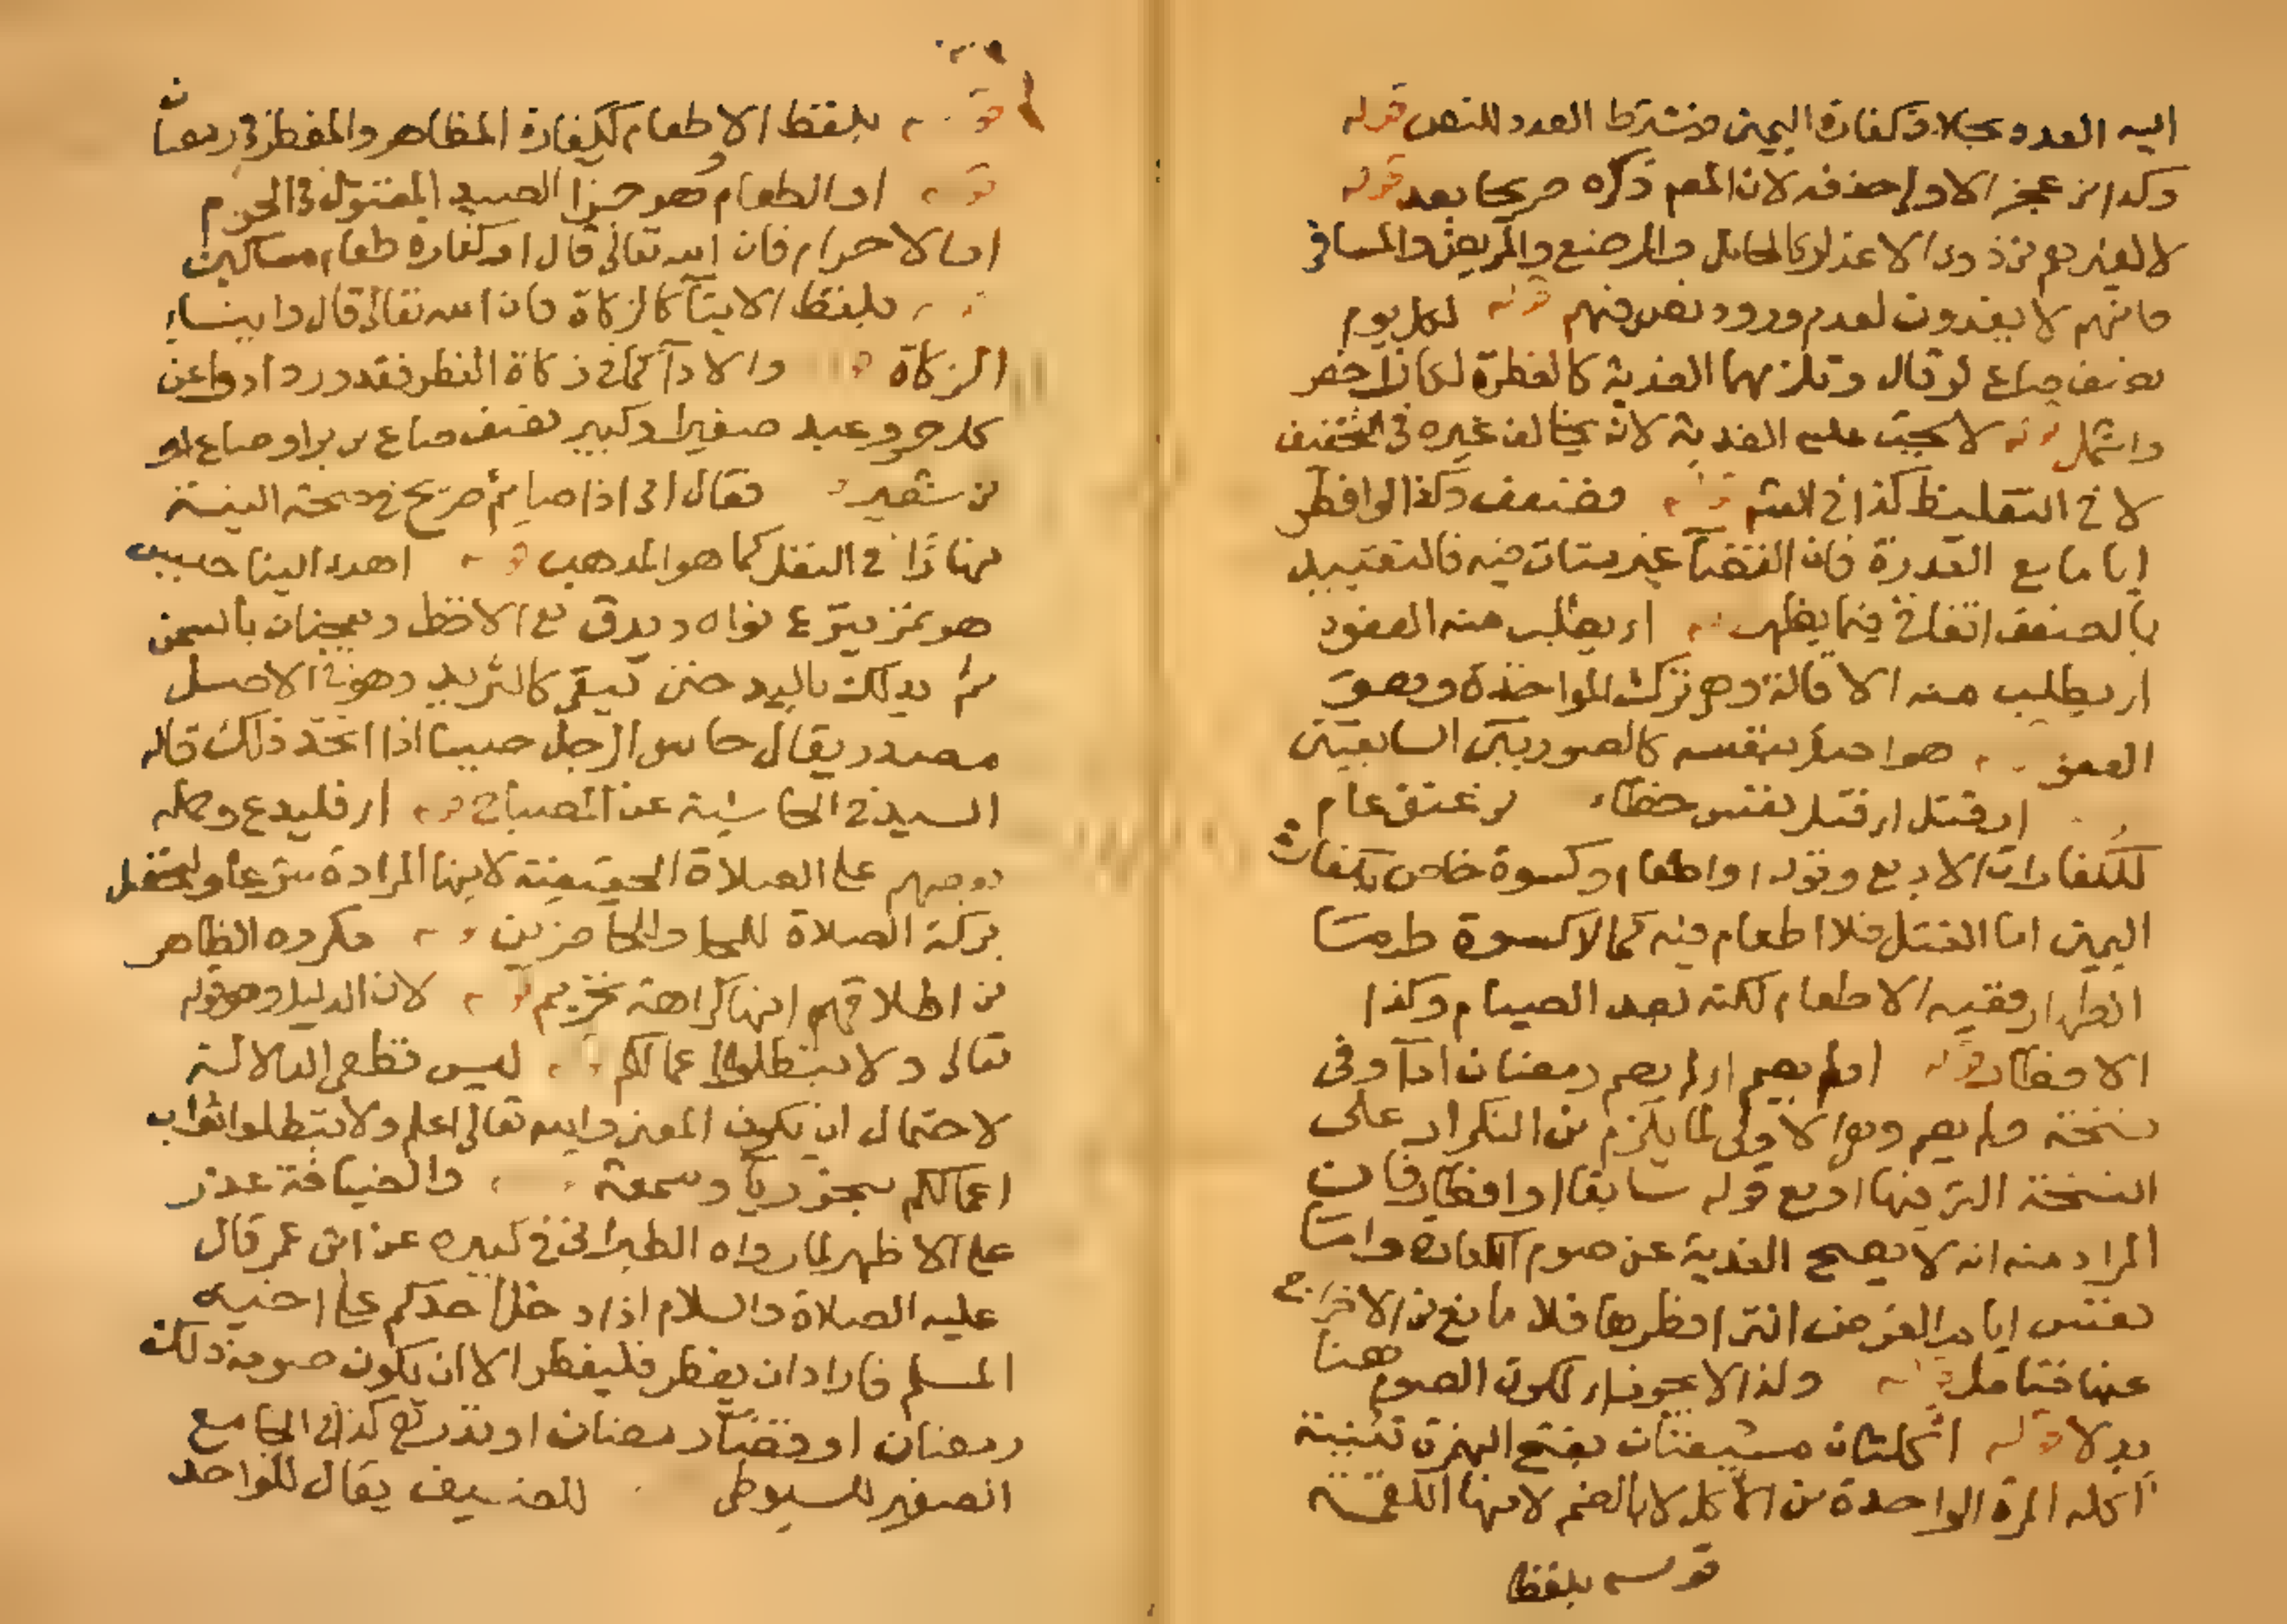 اليه العدد بخلاف كفارة اليمين فيشترط العدد للنص قوله
وكذا من عجز الاولى حذفه لان المص ذكره صريحا بعد قوله
لا لغيرهم من ذوى الاعذار كالحامل والمرضع والمريض والمسافر
فانهم لا يفدون لعدم ورود نص فيهم قوله لكل يوم
نصف صاع لو قال وتلزمهما الفدية كالفطرة لكان اخصر
واشمل قوله لا تجب عليه الفدية لانه يخالف غيره في التخفيف
لا في التغليظ كذا في قوله فضعف وكذا لو افطر
اياما مع القدرة فان القضا غير متات فيه فالتقييد
بالضعف اتفاقي فيما يظهر اي يطلب منه العفو
اي يطلب منه الاقالة وهو ترك المواخذة وهو
العفو هو اصل بنفسه كالصورتين السابقتين
اي قتل اي قتل نفس خطاء من عتق عام
للكفارات الاربع وقوله واطعام وكسوة خاص بكفارة
اليمين اما القتل فلا اطعام فيه كما لا كسوة واما
الظهار ففيه الاطعام لكنه بعد الصيام وكذا
الافطار قوله اولم يصم اي لم يصم رمضان ادآ وفى
نسخة ولم يصم وهو الاولى لما يلزم من التكرار على
النسخة التي فيها او مع قوله سابقا او افطار فان
المراد منه انه لا يصح الفدية عن صوم الكفارة واما
نفس ايام الفرض التي افطرها فلا مانع من الاخراج
عنها فتامل قوله ولذا لا يجوز اي لكون الصوم هنا
بدلا قوله اكلتان مشبعتان بفتح الهمزة تثنية
اكله المرة الواحدة من الاكل لا بالضم لانها اللقمة
قوله بلفظ
قوله بلفظ الاطعام ككفارة المظاهر والمفطر في رمضان
قوله او الطعام وهو جزا الصيد المقتول في الحرم
او الاحرام فان الله تعالى قال او كفارة طعام مساكين
بلفظ الايتآ كالزكاة فان الله تعالى قال وايتاء
الزكاة والادآ كما في زكاة الفطر فقد ورد ادوا عن
كل حر وعبد صغير او كبير نصف صاع من بر او صاع او
من شعير فقال انى اذا صايم صريح في صحة النية
نهارا في النفل كما هو المذهب قوله اهدى الينا حيس
هو تمر ينزع نواه ويدق مع الاقط ويعجنان بالسمن
ثم يدلك باليد حتى يبقى كالثريد وهو في الاصل
مصدر يقال حاس الرجل حيسا اذا اتخذ ذلك قاله
السيد في الحاشية عن المصباح قوله اي فليدع وحمله
بعضهم على الصلاة الحقيقية لانها المرادة شرعا وليحصل
بركة الصلاة للمحل والحاضرين قوله مكروه الظاهر
من اطلاقهم انها كراهة تحريم قوله لان الدليل وهو قوله
تعالى ولا تبطلوا اعمالكم ليس قطعى الدلالة
لاحتمال ان يكون المعنى والله تعالى اعلم ولا تبطلوا ثواب
اعمالكم بنحو ريآ وسمعة والضيافة عذر
على الاظهر لما رواه الطبرانى في كبيره عن ابن عمر قال
عليه الصلاة والسلام اذا دخل احدكم على اخيه
المسلم فاراد ان يفطر فليفطر الا ان يكون صومه ذلك
رمضان او قضآ رمضان او نذر كذا في الجامع
الصغير للسيوطى للضيف يقال للواحد